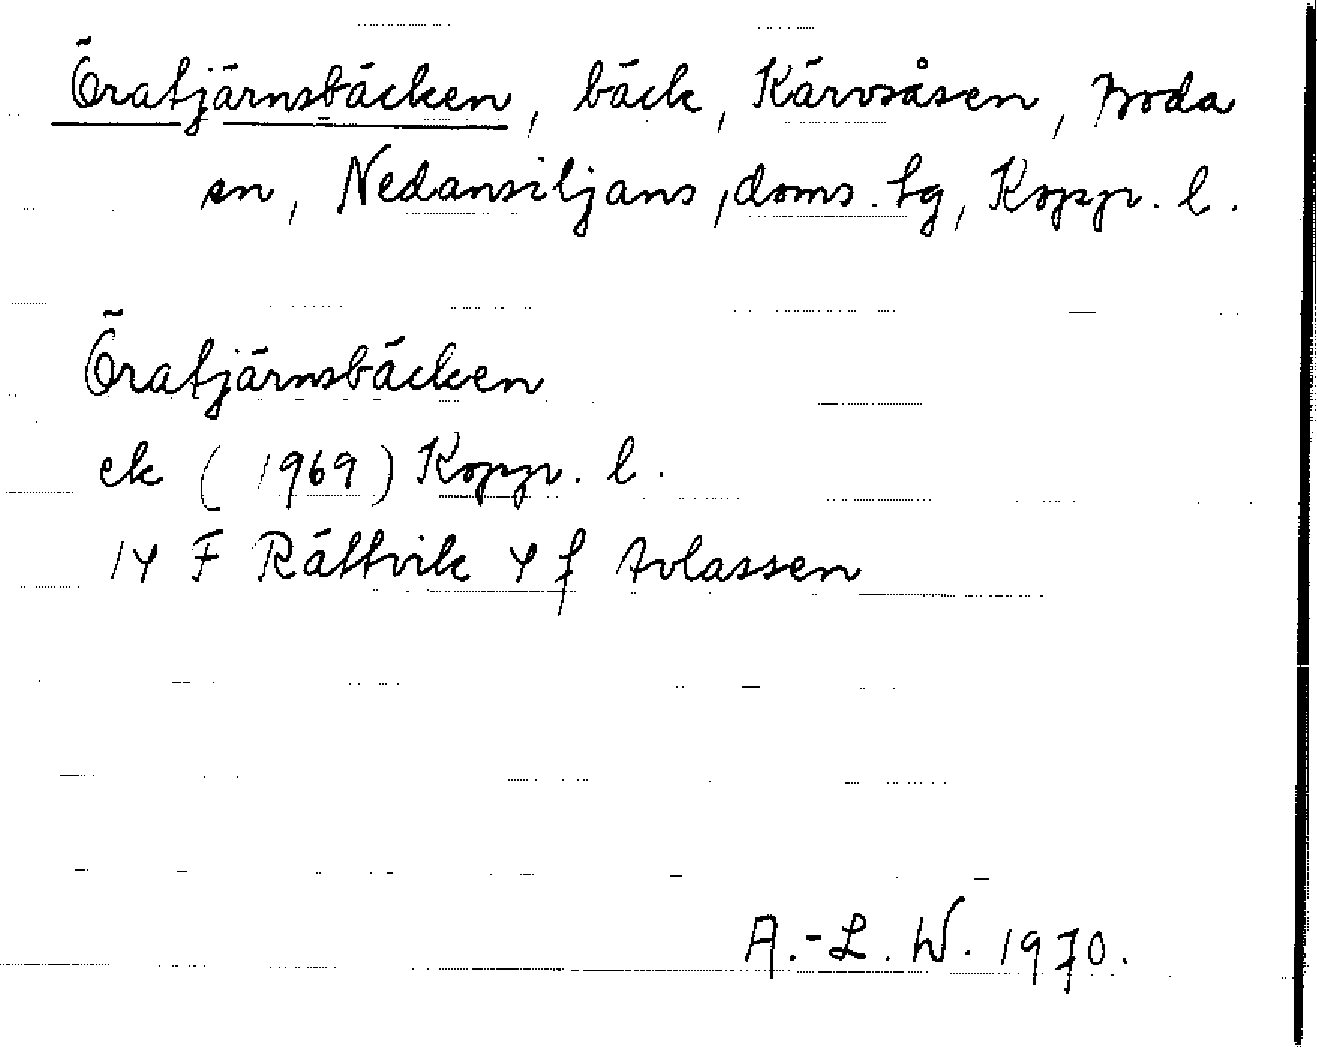 Öratjärnsbäcken, bäck, Kärvsåsen, Boda
sn, Nedansiljans, doms. tg, Kopp. l.
Öratjärnsbäcken
ek (1969) Kopp. l.
14 F Rättvik 4 f Avlassen
A.-L. W. 1970.